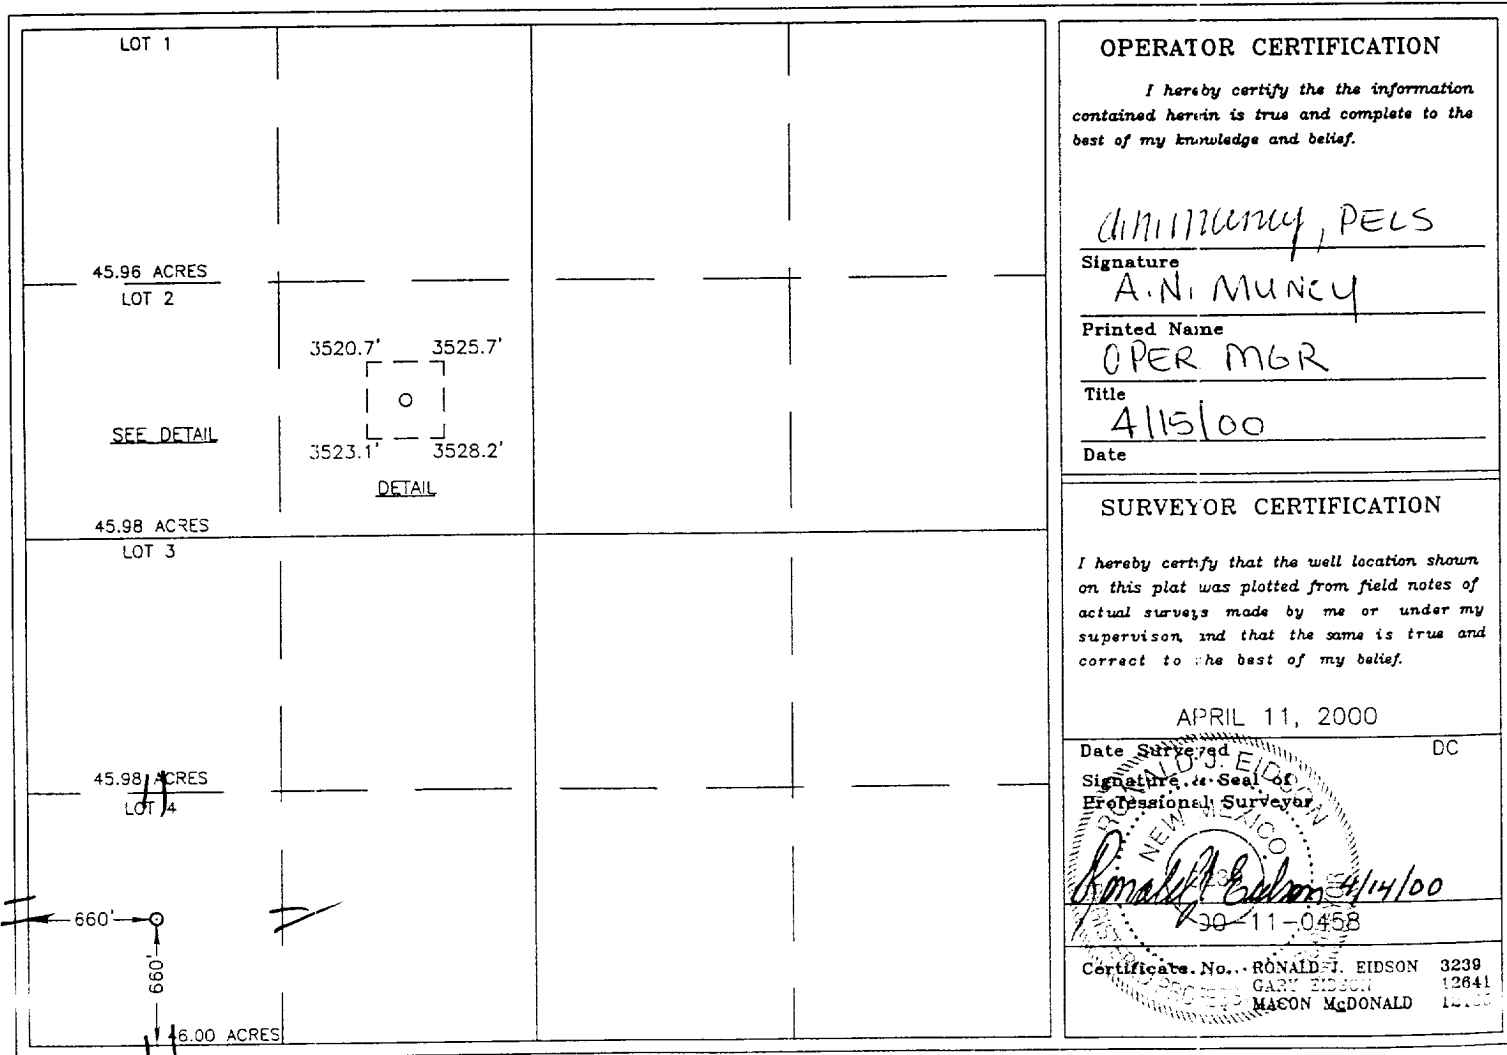 LOT 1
45.96 ACRES
LOT 2
3520.7' 3525.7'
SEE DETAIL
3523.1' 3528.2'
DETAIL
45.98 ACRES
LOT 3
45.98 ACRES
LOT 4
660'
660'
46.00 ACRES
OPERATOR CERTIFICATION
I hereby certify the the information
contained herein is true and complete to the
best of my knowledge and belief.
PELS
Signature
A.N. MUNCY
Printed Name
OPER MGR
Title
4/15/00
Date
SURVEYOR CERTIFICATION
I hereby certify that the well location shown
on this plat was plotted from field notes of
actual surveys made by me or under my
supervison, and that the same is true and
correct to the best of my belief.
APRIL 11, 2000
Date Surveyed DC
Signature & Seal of
Professional Surveyor
RONALD J. EIDSON
NEW MEXICO
Ronald J Eidson 4/14/00
00-11-0458
Certificate No. RONALD J. EIDSON 3239
GARY EIDSON 12641
MACON McDONALD